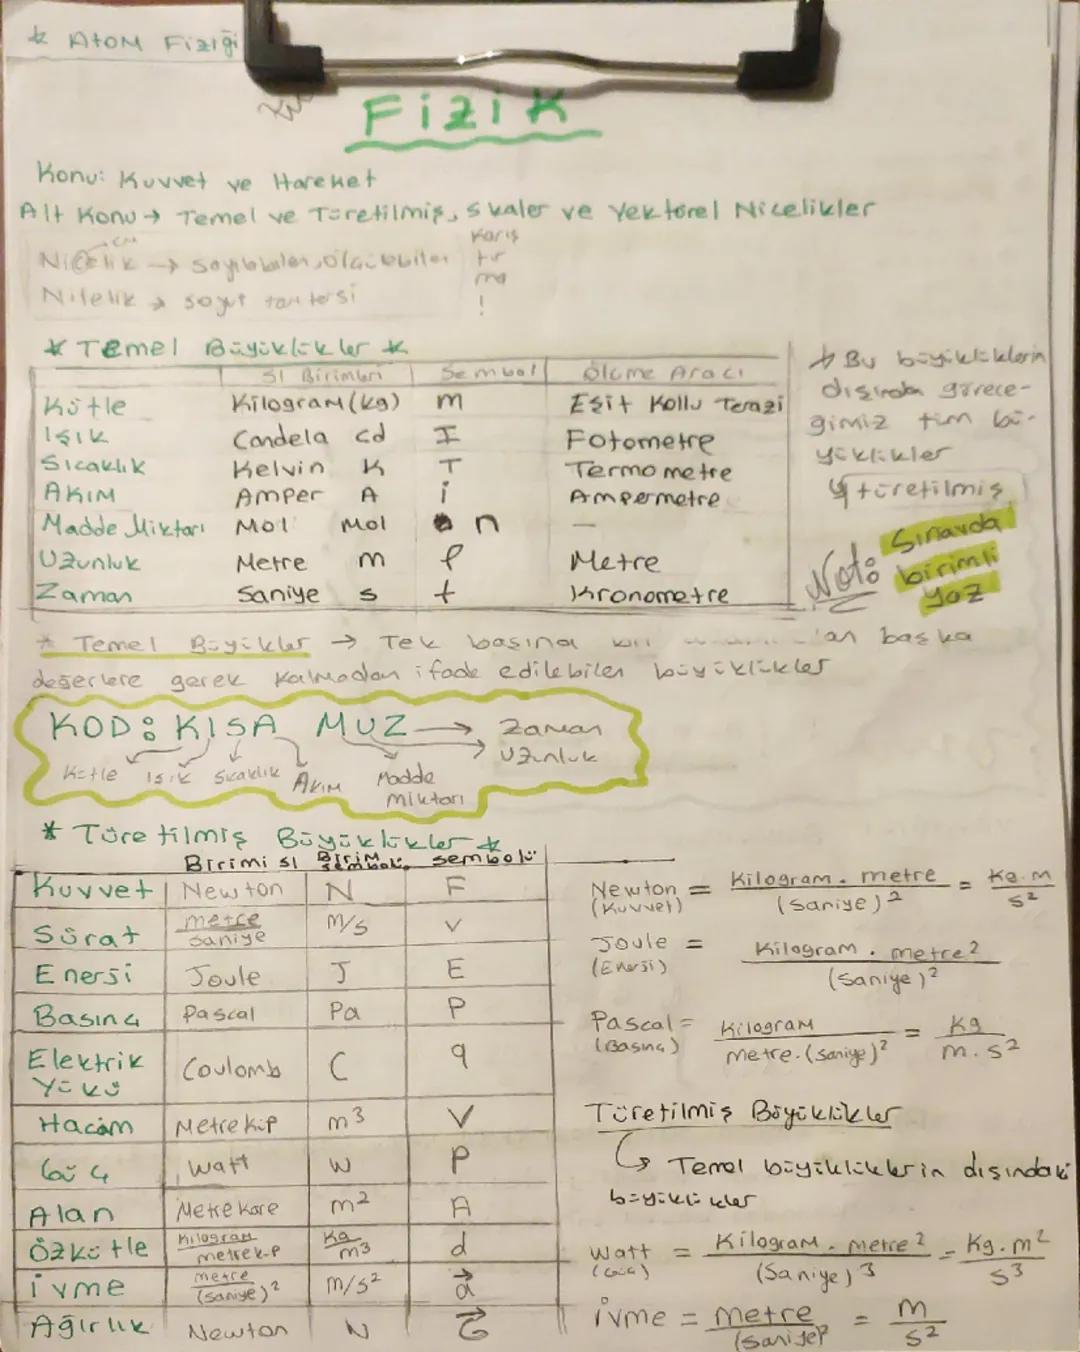 * Atom Fiziği
Fizik
Konu: Kuvvet ve Hareket
Alt Konu → Temel ve Türetilmiş, Skaler ve Vektörel Nicelikler
Nicelik → sayılabilen, ölçülebilen
Nitelik → soyut tam tersi
Karış
tır
ma
!
* Temel Büyüklükler *
SI Birimleri Sembol Ölçme Aracı
Kütle Kilogram (kg) m Eşit Kollu Terazi
Işık Candela cd I Fotometre
Sıcaklık Kelvin K T Termometre
Akım Amper A i Ampermetre
Madde Miktarı Mol Mol n —
Uzunluk Metre m l Metre
Zaman Saniye s t Kronometre
* Bu büyüklüklerin
dışında görece-
ğimiz tüm bü-
yüklükler
↳ türetilmiş
Not: Sınavda
birimli
yaz
* Temel Büyükler → Tek başına başka
değerlere gerek kalmadan ifade edilebilen büyüklükler
KOD: KISA MUZ → Zaman
→ Uzunluk
Kütle Işık Sıcaklık Akım Madde
miktarı
* Türetilmiş Büyüklükler *
Birimi SI Birim sembolü sembolü
Kuvvet Newton N F
Sürat metre/saniye m/s v
Enerji Joule J E
Basınç Pascal Pa P
Elektrik Yükü Coulomb C q
Hacim Metreküp m³ V
Güç Watt W P
Alan Metrekare m² A
Özkütle Kilogram/metreküp kg/m³ d
İvme metre/(saniye)² m/s² a⃗
Ağırlık Newton N G⃗
Newton (Kuvvet) = Kilogram . metre/(saniye)² = Kg.m/s²
Joule (Enerji) = Kilogram . metre²/(saniye)²
Pascal (Basınç) = Kilogram/metre.(saniye)² = Kg/m.s²
Türetilmiş Büyüklükler
↳ Temel büyüklüklerin dışındaki
büyüklükler
Watt (Güç) = Kilogram . metre²/(saniye)³ = Kg.m²/s³
İvme = Metre/(saniye)² = m/s²